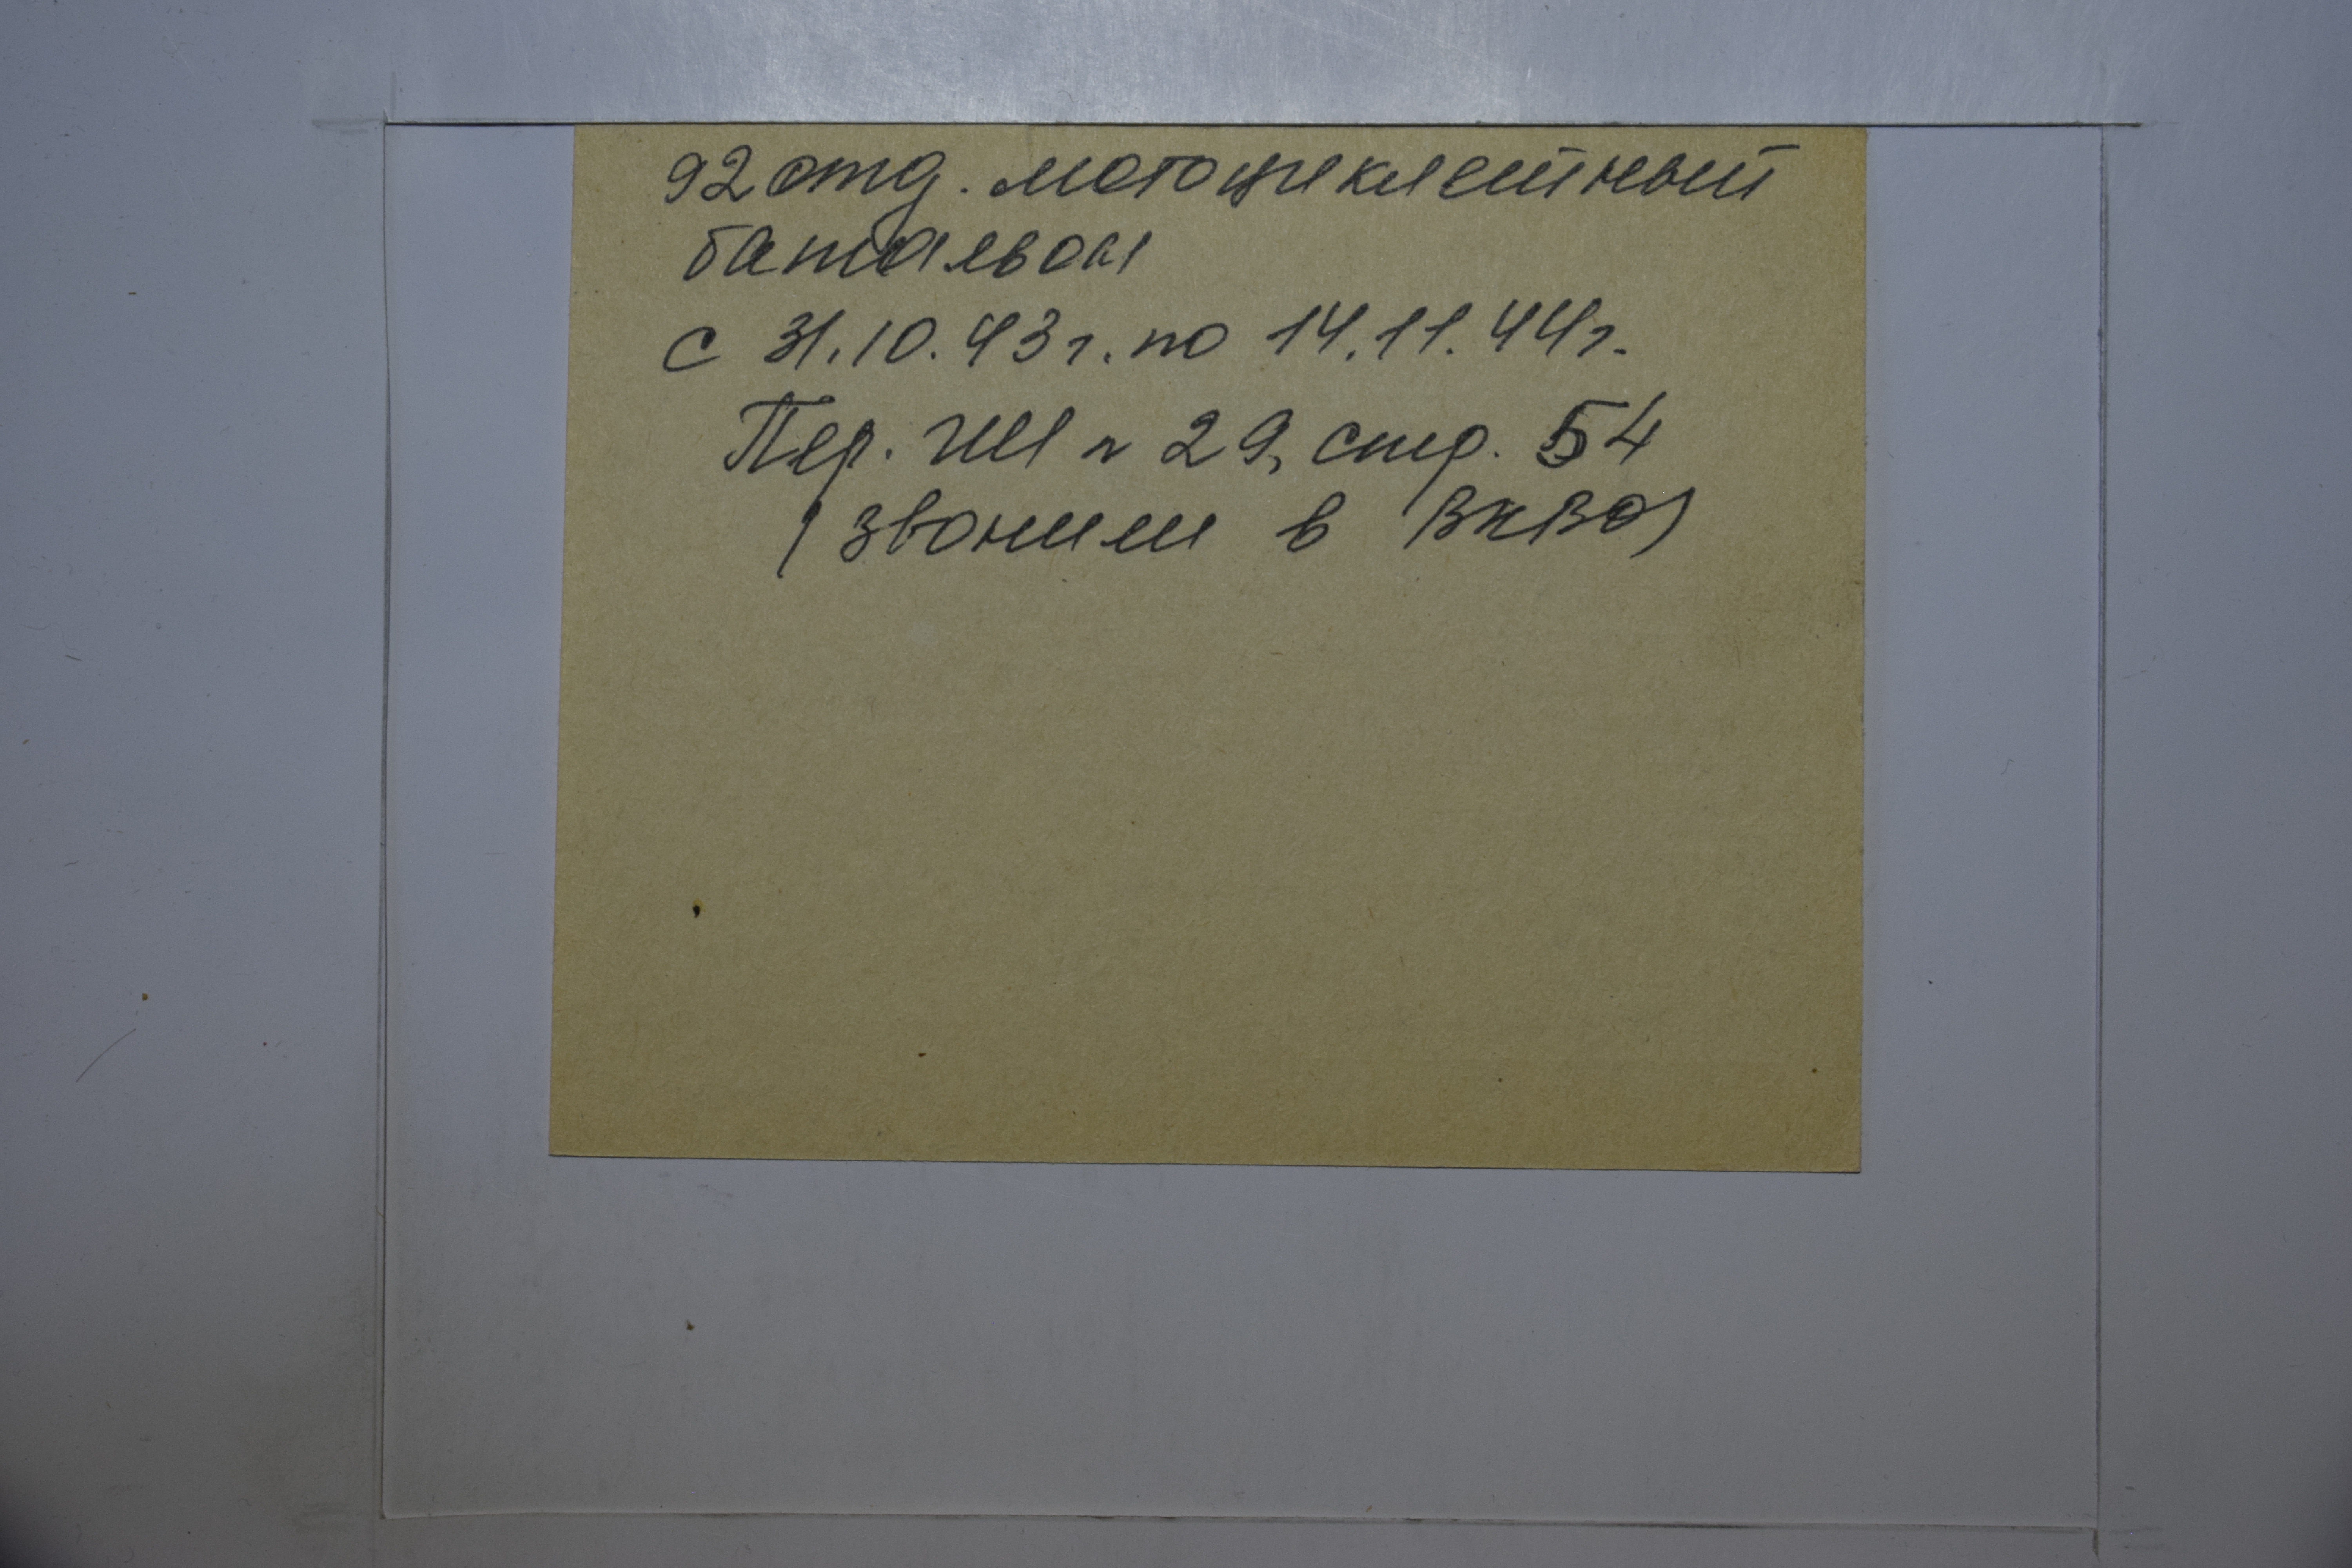 92 отд. мотоциклетный
батальон
с 31.10.43г. по 14.11.44г.
Пер. ГШ № 29, стр. 54
(звонили в ВКВО)